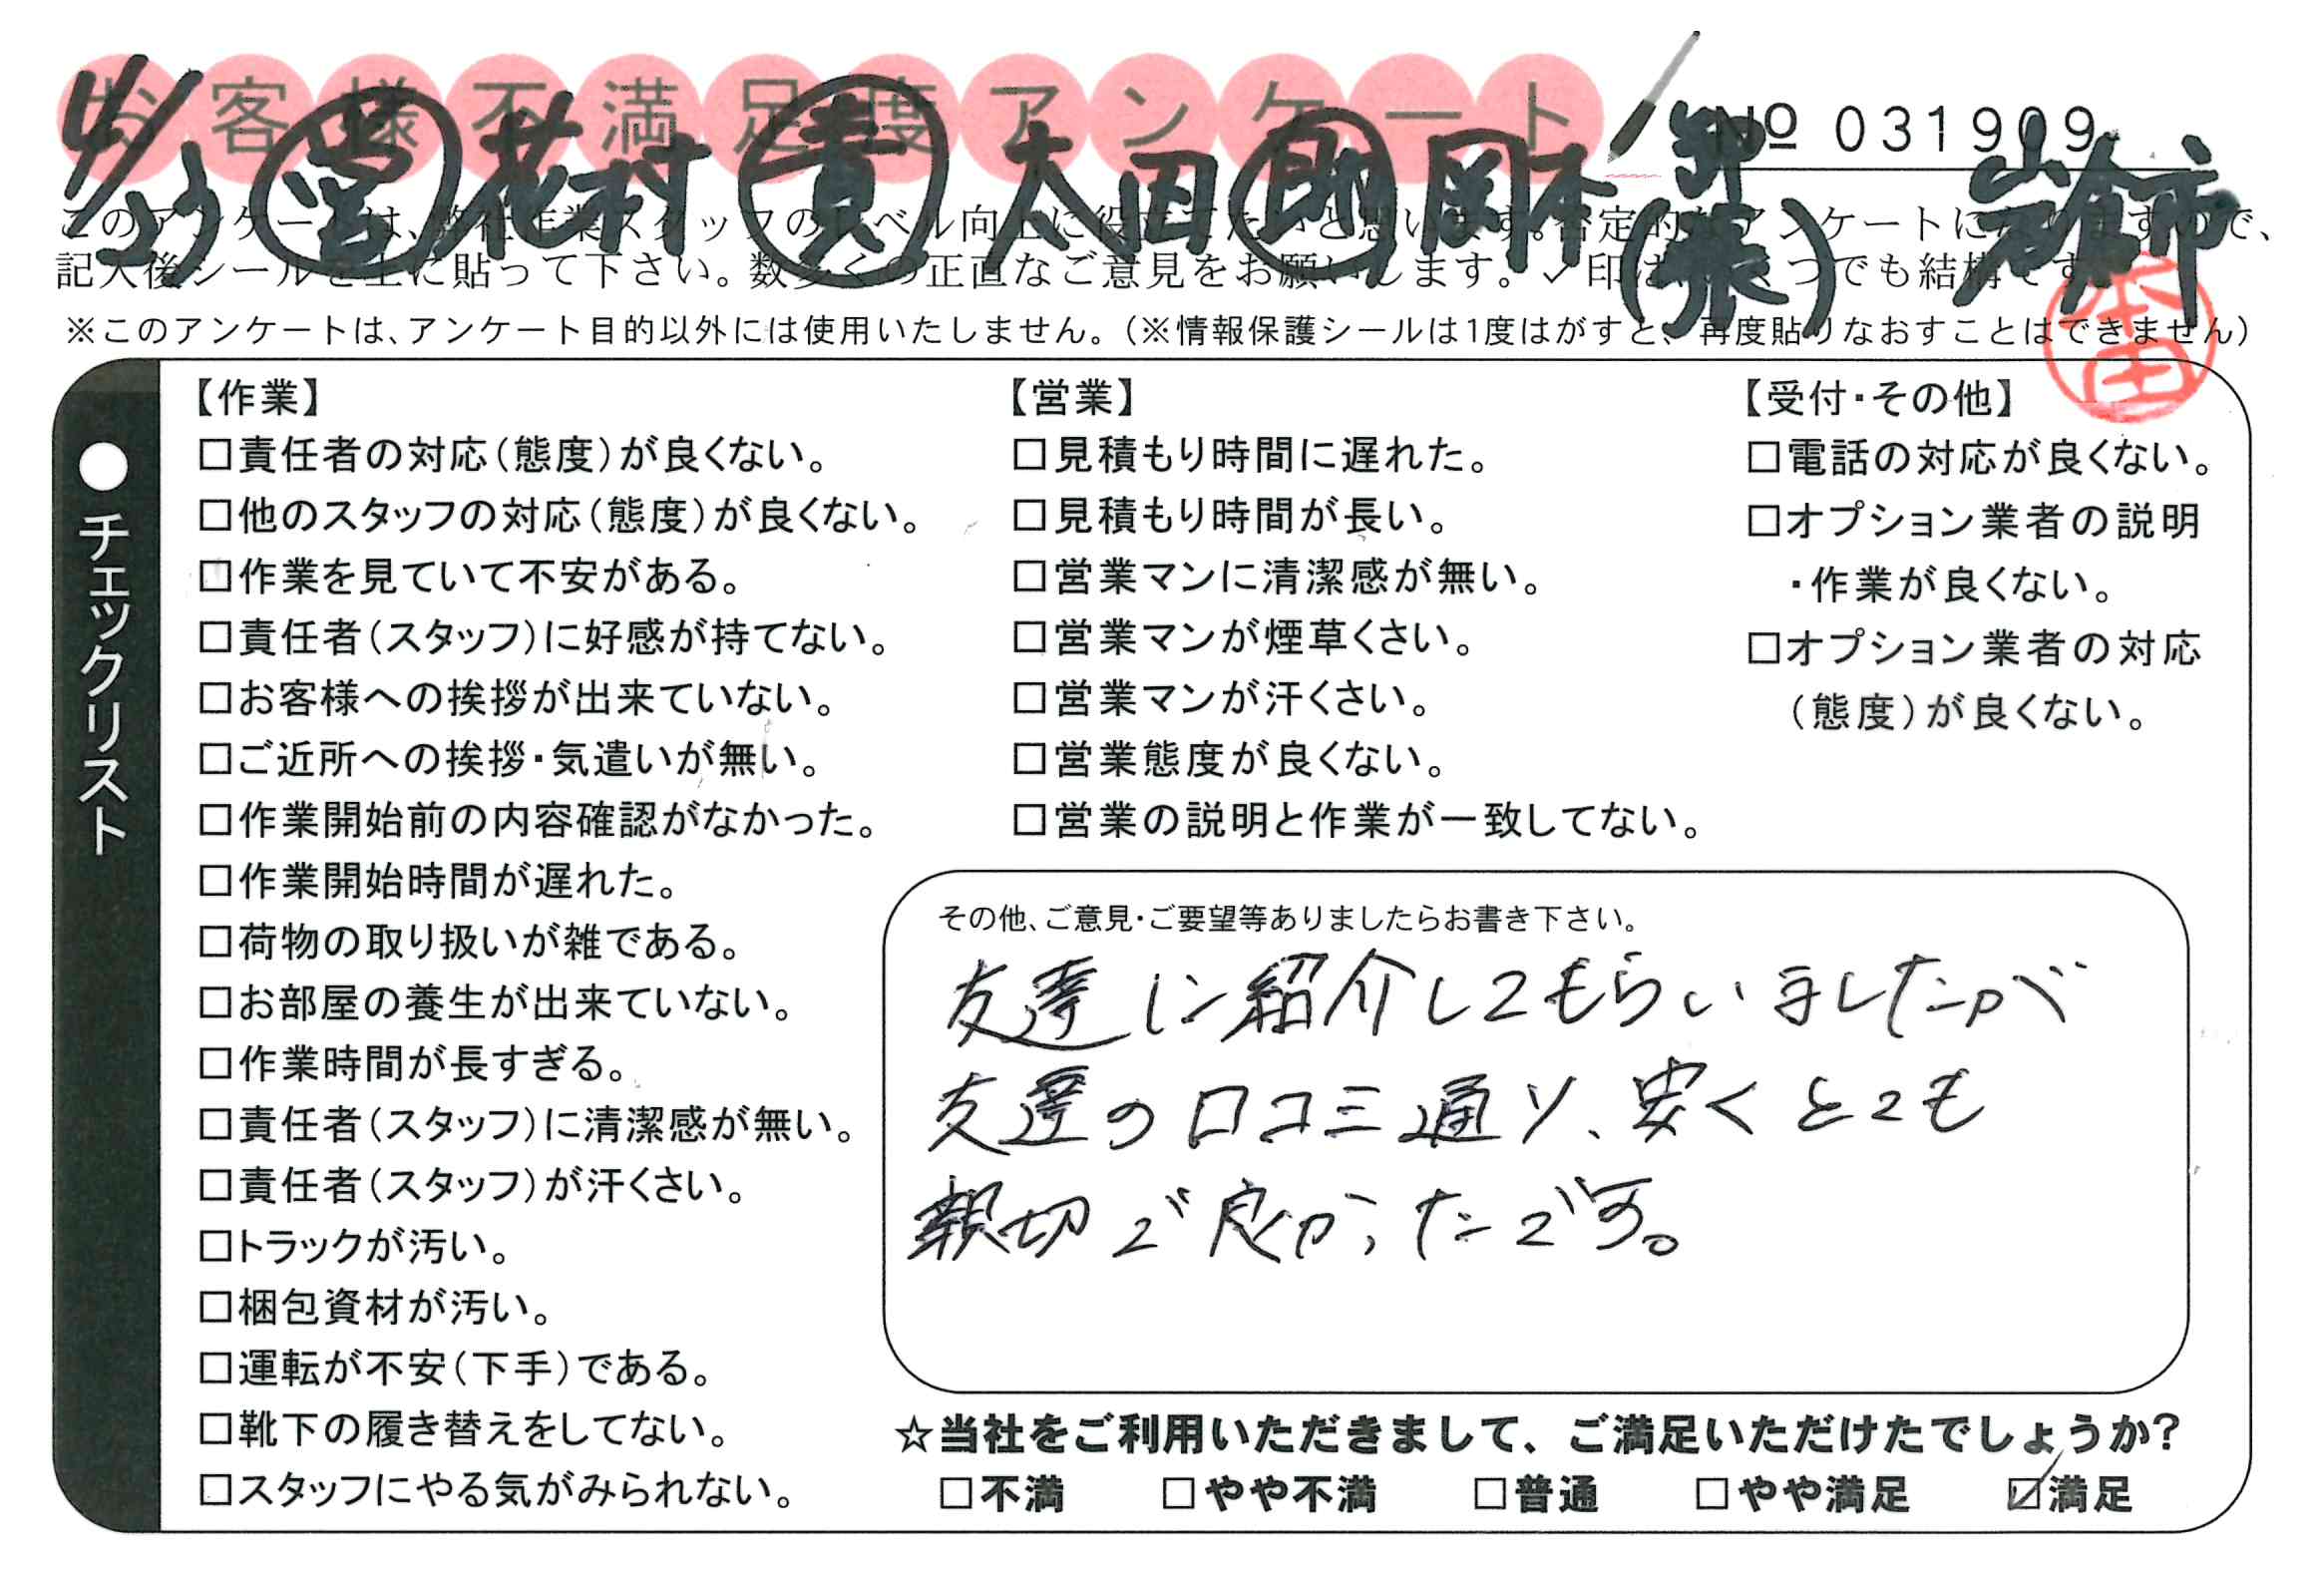 お客様不満足度アンケート
№ 031909
4/23 営 花村 責 太田 助 岡本
このアンケートは、弊社作業スタッフのレベル向上に役立てたいと思います。否定的なアンケートになりますので、
記入後シールを上に貼って下さい。数多くの正直なご意見をお願いします。✓印はいくつでも結構です
※このアンケートは、アンケート目的以外には使用いたしません。（※情報保護シールは1度はがすと、再度貼りなおすことはできません）
本田
●チェックリスト
【作業】
□責任者の対応（態度）が良くない。
□他のスタッフの対応（態度）が良くない。
□作業を見ていて不安がある。
□責任者（スタッフ）に好感が持てない。
□お客様への挨拶が出来ていない。
□ご近所への挨拶・気遣いが無い。
□作業開始前の内容確認がなかった。
□作業開始時間が遅れた。
□荷物の取り扱いが雑である。
□お部屋の養生が出来ていない。
□作業時間が長すぎる。
□責任者（スタッフ）に清潔感が無い。
□責任者（スタッフ）が汗くさい。
□トラックが汚い。
□梱包資材が汚い。
□運転が不安（下手）である。
□靴下の履き替えをしてない。
□スタッフにやる気がみられない。
【営業】
□見積もり時間に遅れた。
□見積もり時間が長い。
□営業マンに清潔感が無い。
□営業マンが煙草くさい。
□営業マンが汗くさい。
□営業態度が良くない。
□営業の説明と作業が一致してない。
【受付・その他】
□電話の対応が良くない。
□オプション業者の説明
・作業が良くない。
□オプション業者の対応
（態度）が良くない。
その他、ご意見・ご要望等ありましたらお書き下さい。
友達に紹介してもらいましたが
友達の口コミ通り、安くとても
親切で良かったです。
☆当社をご利用いただきまして、ご満足いただけたでしょうか？
□不満 □やや不満 □普通 □やや満足 ☑満足